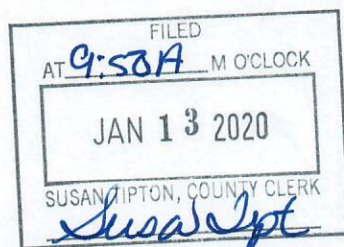 FILED
AT 9:50A M O'CLOCK
JAN 13 2020
SUSAN TIPTON, COUNTY CLERK